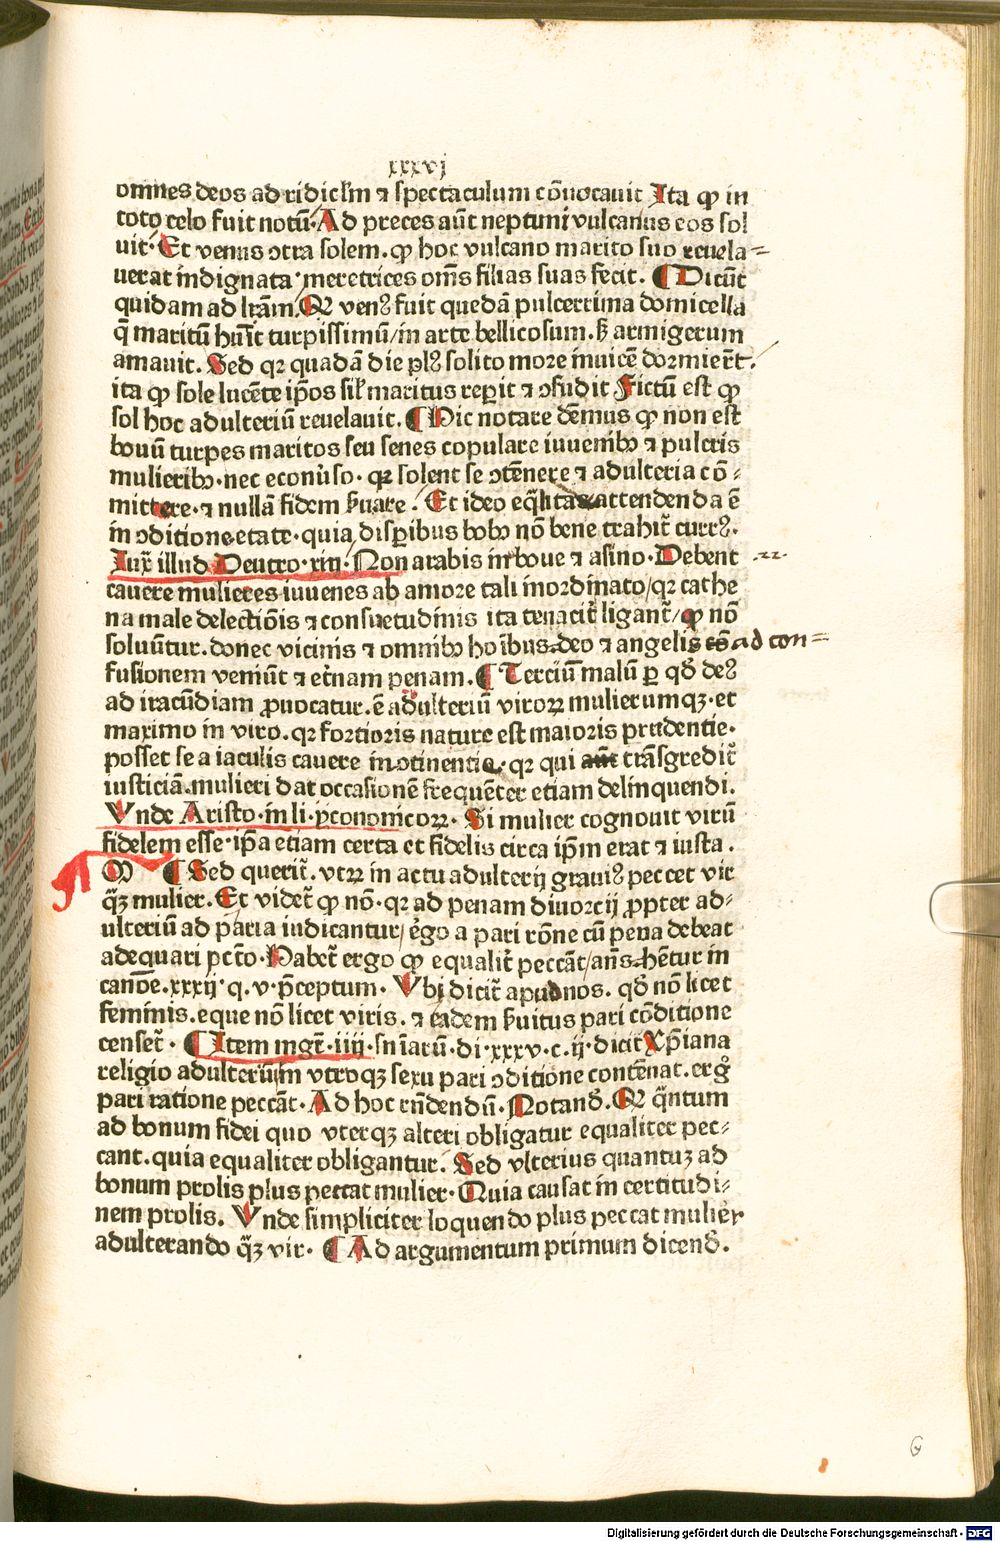 xxxvj
omnes deos ad ridiclm ⁊ spectaculum cōuocauit Ita ꝙ in
toto celo fuit notū. Ad preces aūt neptuni vulcanus eos sol
uit. Et venus ɔtra solem. ꝙ hoc vulcano marito suo reuela⸗
uerat indignata meretrices om̄s filias suas fecit. ¶ Dicūt
quidam ad lr̄am. Ꝙ ven⁹ fuit quedā pulcerrima domicella
q̄ maritū hūıt turpissimū/in arte bellicosum. ẜꝫ armigerum
amauit. Sed qꝛ quadā die pl⁹ solito more inuicē dormierēt.
ita ꝙ sole lucēte ip̄os sil̕ maritus reꝑit ⁊ ɔfudit Fictū est ꝙ
sol hoc adulteriū reuelauit. ¶ Hic notare dēmus ꝙ non est
bonū turpes maritos seu senes copulare iuuenibꝰ ⁊ pulcris
mulieribꝰ. nec econuerso. qꝛ solent se ɔtēnere ⁊ adulteria cō⸗
mittere. ⁊ nullā fidem ẜuare. Et ideo eq̄litas attendenda ē
in ɔditione etate. quia disꝑibus bobꝰ nō bene trahit̄ curr⁹.
Iux̄ illud Deutro. xiij. Non arabis in boue ⁊ asino. Debent
cauere mulieres iuuenes ab amore tali inordinato/qꝛ cathe
na male delectiōis ⁊ consuetudinis ita tenacit̄ ligant̄/ꝙ nō
soluūtur. donec vicinis ⁊ omnibꝰ hoı̄bus deo ⁊ angelis eꝰ ad con⸗
fusionem veniūt ⁊ et̄nam penam. ¶ Terciū malū ꝑ qd̄ de⁹
ad iracūdiam ꝓuocatur. ē adulteriū viroꝝ mulierumqꝫ. et
maximo in viro. qꝛ fortioris nature est maioris prudentie.
posset se a iaculis cauere inɔtinentie. qꝛ qui aūt trāsgredit̄
iusticiā mulieri dat occasionē frequēter etiam delinquendi.
Vnde Aristo. in li. yconomicoꝝ. Si mulier cognouit virū
fidelem esse. ip̄a etiam certa et fidelis circa ip̄m erat ⁊ iusta.
¶ Sed querit̄. vtꝝ in actu adulterij graui⁹ peccet vir
q̄ꝫ mulier. Et videt̄ ꝙ nō. qꝛ ad penam diuorcij ꝓpter ad⸗
ulteriū ad paria iudicantur/ e̓go a pari rōne cū pena debeat
adequari pctō. Pabet̄ ergo ꝙ equalit̄ peccāt/an̄s hētur in
canōe. xxxij. q. v. p̄ceptum. Vbi dicit̄ apud nos. qd̄ nō licet
feminis. eque nō licet viris. ⁊ eadem ẜuitus pari cōditione
censet̄. ¶ Item mgr̄. iiij. sn̄iarū. di. xxxv. c. ij. dicit Xp̄iana
religio adulteriū in vtroqꝫ sexu pari ɔditione contēnat. erg̊
pari ratione peccāt. Ad hoc rn̄dendū. Notand̄. Ꝙ q̄ntum
ad bonum fidei quo vterqꝫ alteri obligatur equaliter pec⸗
cant. quia equaliter obligantur. Sed vlterius quantuꝫ ad
bonum prolis plus peccat mulier. Quia causat in certitudi⸗
nem prolis. Vnde simpliciter loquendo plus peccat mulier
adulterando q̄ꝫ vir. ¶ Ad argumentum primum dicend̄.
Digitalisierung gefördert durch die Deutsche Forschungsgemeinschaft - DFG